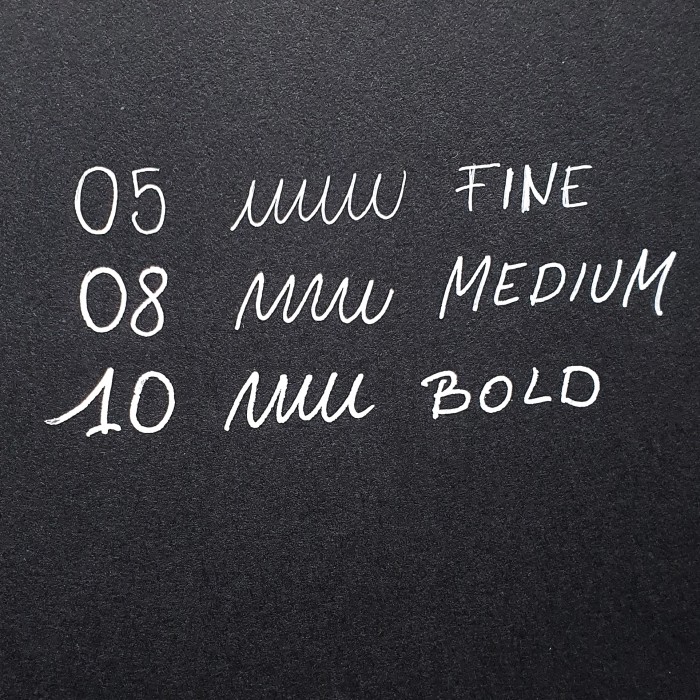 05 FINE
08 MEDIUM
10 BOLD